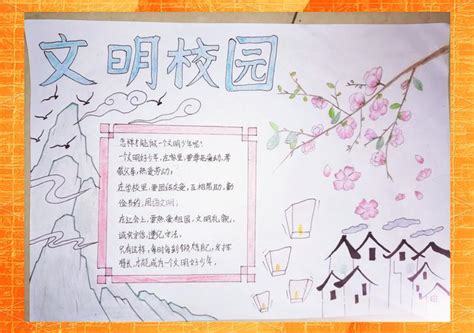 文明校园
怎样才能做一个文明少年呢?
一个文明好少年,在家里,要尊老爱幼,孝
敬父母,热爱劳动;
在学校里,要团结友爱,互相帮助,勤
俭节约,用语文明;
在社会上,要热爱祖国,文明礼貌,
诚实守信,遵纪守法。
只有这样,每时每刻锻炼自己,发挥
特长,才能成为一个文明好少年。